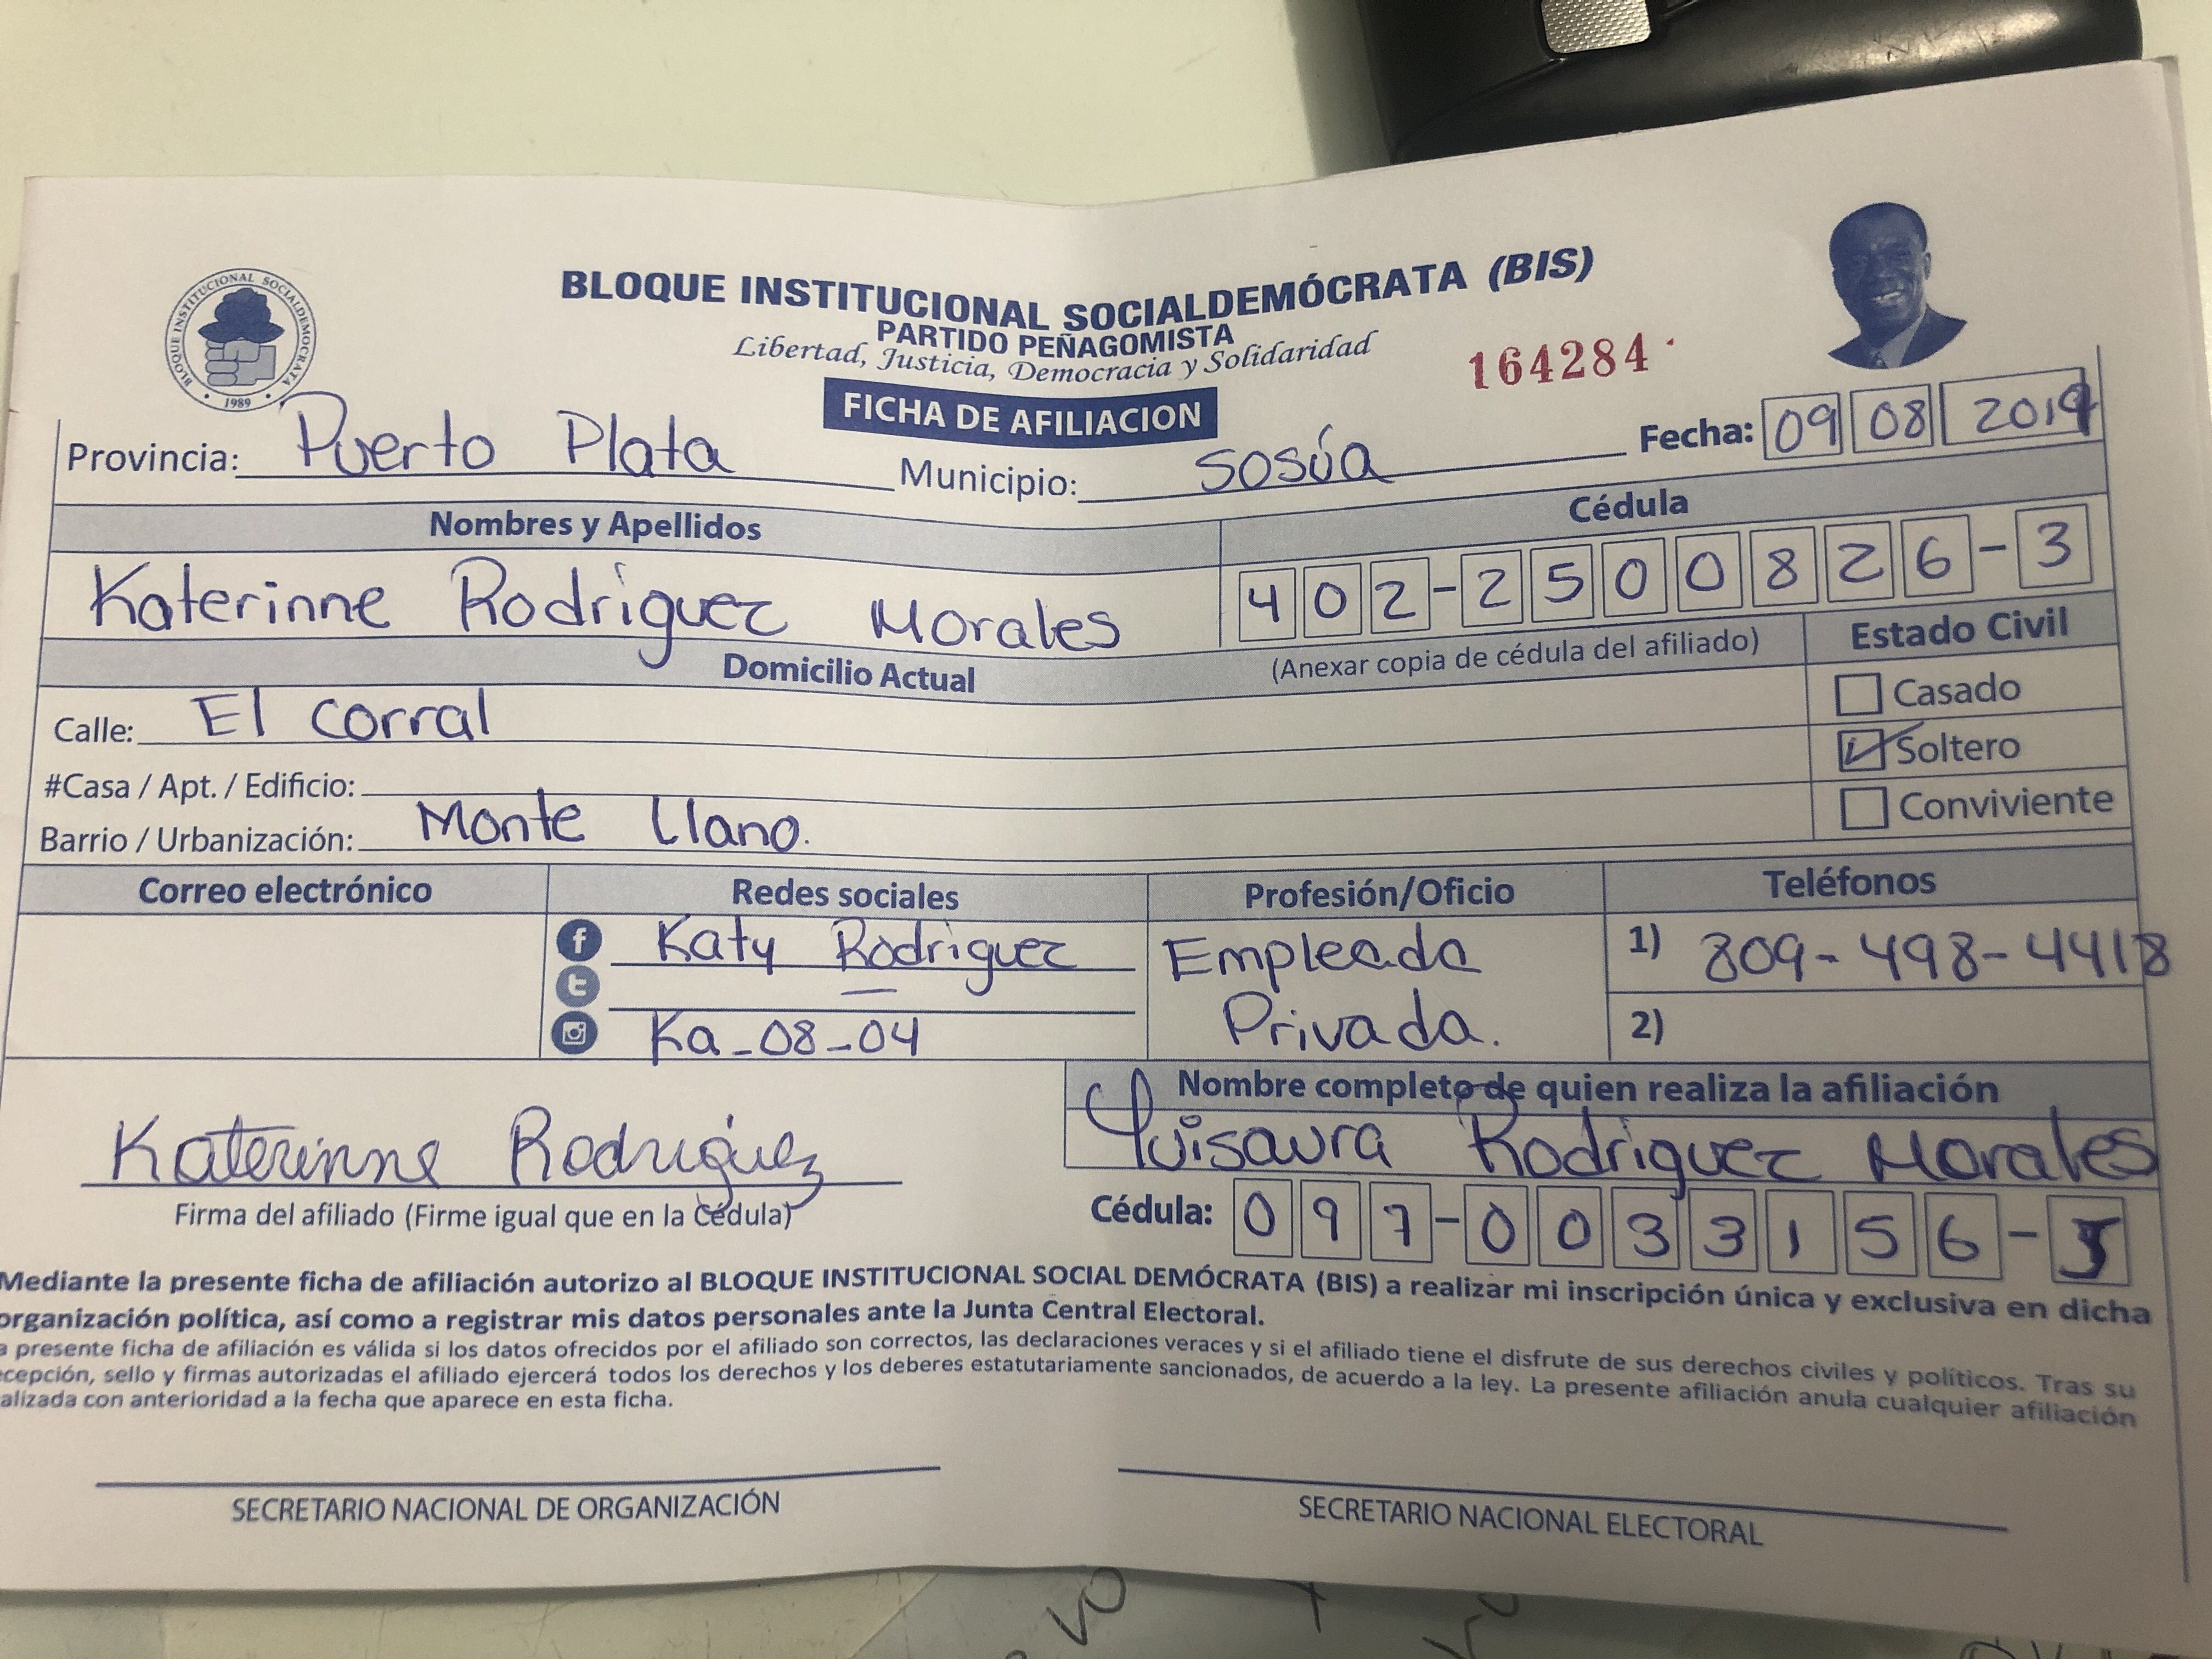 BLOQUE INSTITUCIONAL SOCIALDEMOCRATA
1989
BLOQUE INSTITUCIONAL SOCIALDEMÓCRATA (BIS)
PARTIDO PEÑAGOMISTA
Libertad, Justicia, Democracia y Solidaridad
164284
FICHA DE AFILIACION
Fecha: 09 08 2019
Provincia: Puerto Plata Municipio: Sosúa
Nombres y Apellidos Cédula
Katerinne Rodriguez Morales 402-2500826-3
(Anexar copia de cédula del afiliado)
Domicilio Actual Estado Civil
Calle: El Corral
Casado
#Casa / Apt. / Edificio:
Soltero
Barrio / Urbanización: Monte Llano.
Conviviente
Correo electrónico Redes sociales Profesión/Oficio Teléfonos
f Katy Rodriguez Empleada 1) 809-498-4418
t —
Ka_08_04 Privada. 2)
Nombre completo de quien realiza la afiliación
Katerinne Rodriguez Luisaura Rodriguez Morales
Firma del afiliado (Firme igual que en la Cédula) Cédula: 097-0033156-
Mediante la presente ficha de afiliación autorizo al BLOQUE INSTITUCIONAL SOCIAL DEMÓCRATA (BIS) a realizar mi inscripción única y exclusiva en dicha
organización política, así como a registrar mis datos personales ante la Junta Central Electoral.
a presente ficha de afiliación es válida si los datos ofrecidos por el afiliado son correctos, las declaraciones veraces y si el afiliado tiene el disfrute de sus derechos civiles y políticos. Tras su
ecepción, sello y firmas autorizadas el afiliado ejercerá todos los derechos y los deberes estatutariamente sancionados, de acuerdo a la ley. La presente afiliación anula cualquier afiliación
alizada con anterioridad a la fecha que aparece en esta ficha.
SECRETARIO NACIONAL DE ORGANIZACIÓN SECRETARIO NACIONAL ELECTORAL